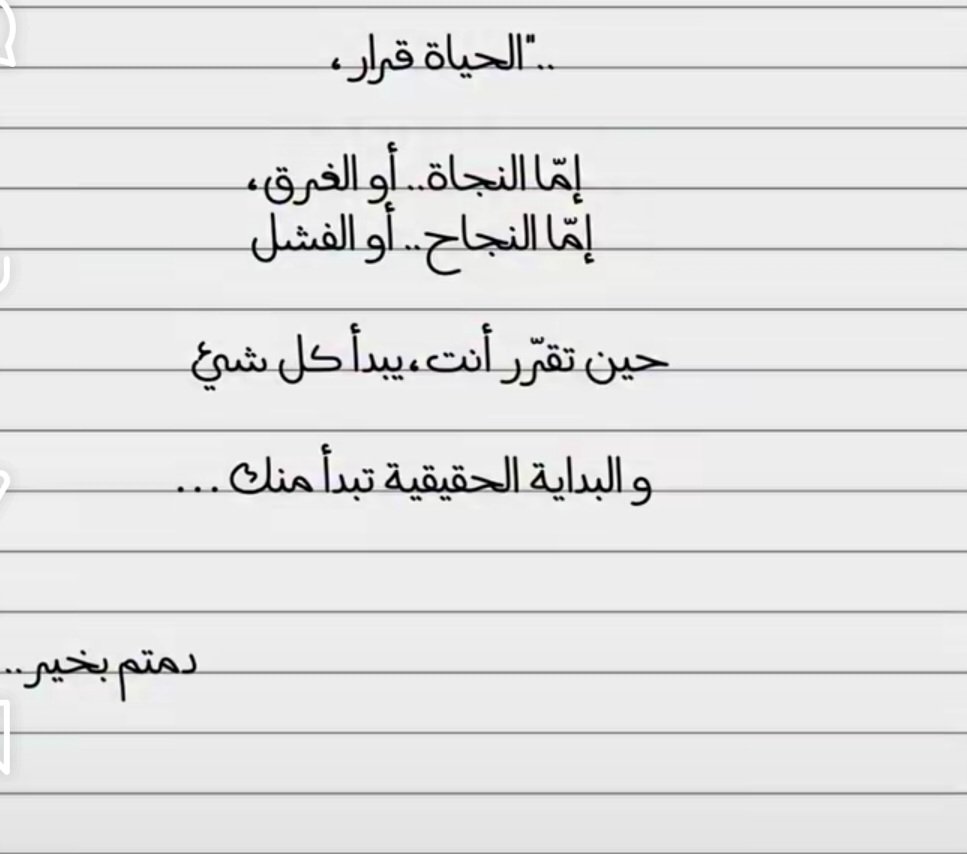 .."الحياة قرار،
إمّا النجاة.. أو الغرق،
إمّا النجاح.. أو الفشل
حين تقرّر أنت،يبدأ كل شيئ
و البداية الحقيقية تبدأ منك ...
دمتم بخير..